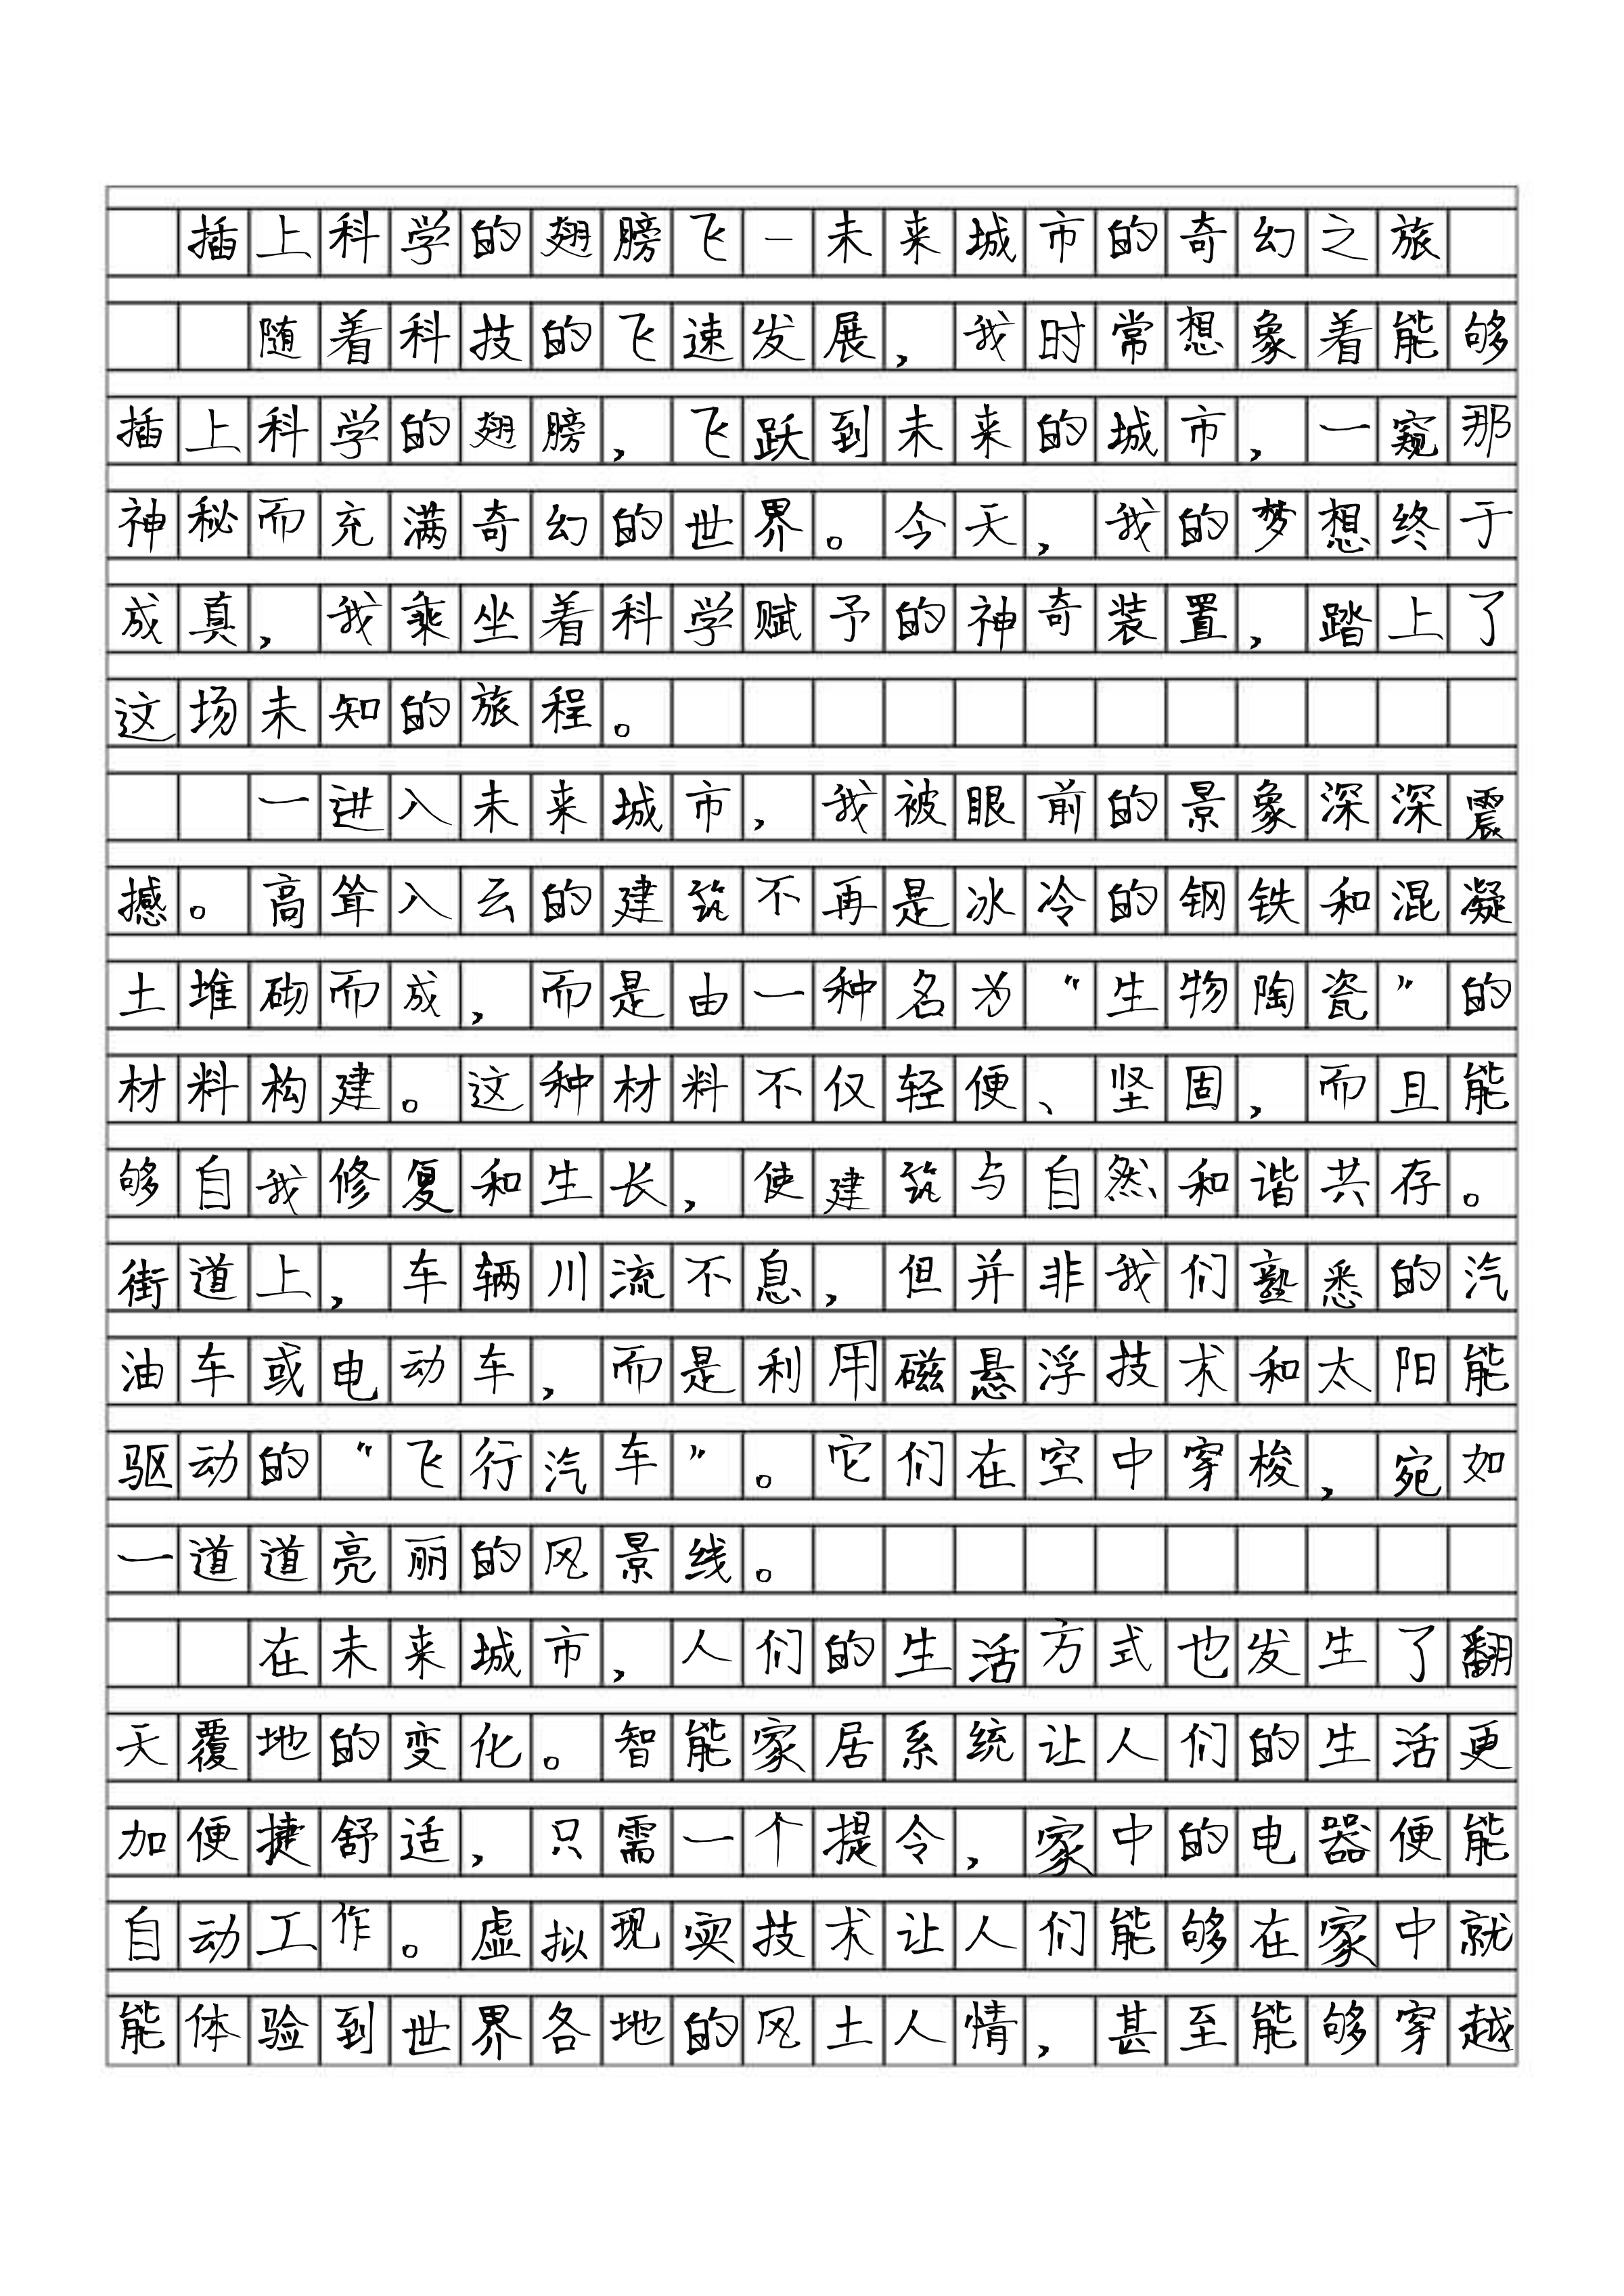 插上科学的翅膀飞-未来城市的奇幻之旅
随着科技的飞速发展，我时常想象着能够
插上科学的翅膀，飞跃到未来的城市，一窥那
神秘而充满奇幻的世界。今天，我的梦想终于
成真，我乘坐着科学赋予的神奇装置，踏上了
这场未知的旅程。
一进入未来城市，我被眼前的景象深深震
撼。高耸入云的建筑不再是冰冷的钢铁和混凝
土堆砌而成，而是由一种名为“生物陶瓷”的
材料构建。这种材料不仅轻便、坚固，而且能
够自我修复和生长，使建筑与自然和谐共存。
街道上，车辆川流不息，但并非我们熟悉的汽
油车或电动车，而是利用磁悬浮技术和太阳能
驱动的“飞行汽车”。它们在空中穿梭，宛如
一道道亮丽的风景线。
在未来城市，人们的生活方式也发生了翻
天覆地的变化。智能家居系统让人们的生活更
加便捷舒适，只需一个提令，家中的电器便能
自动工作。虚拟现实技术让人们能够在家中就
能体验到世界各地的风土人情，甚至能够穿越